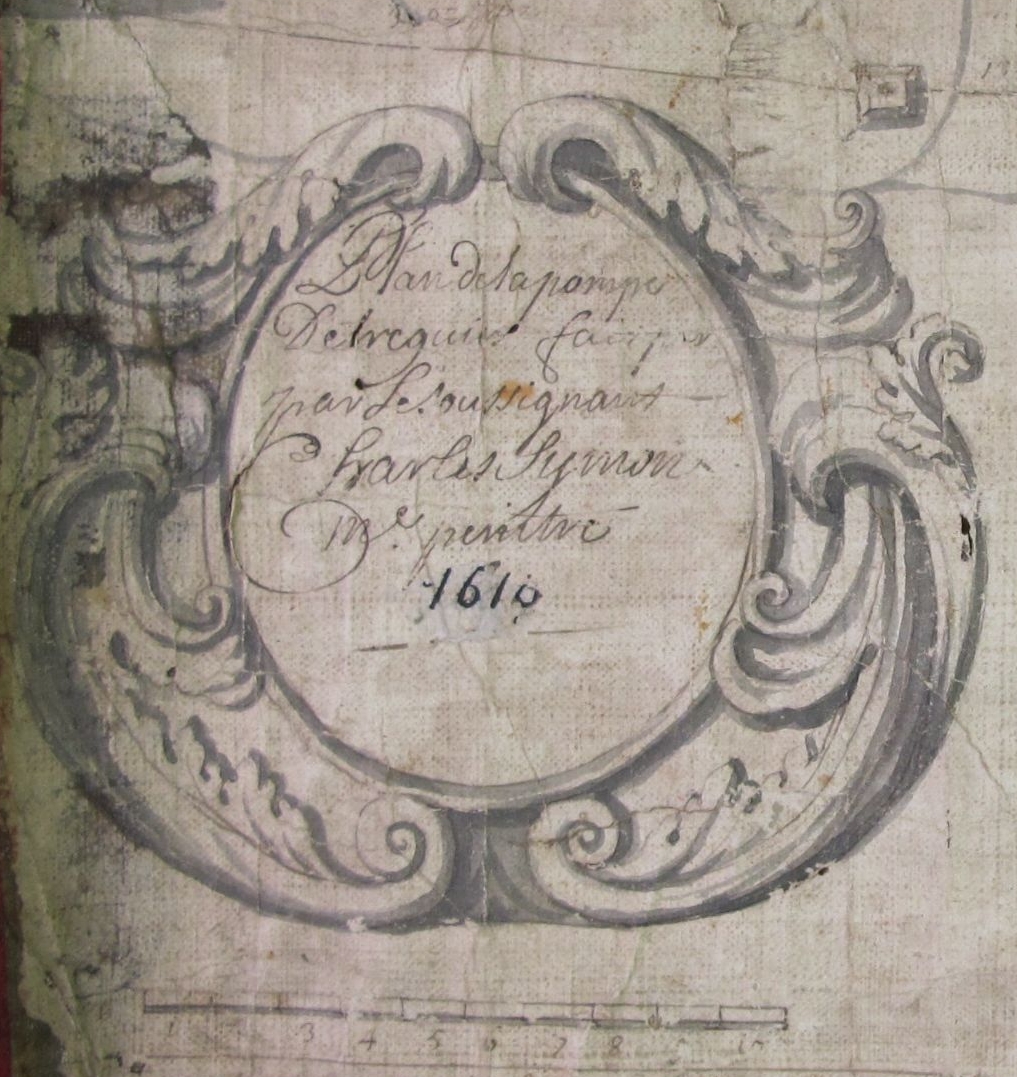 Plan de la pompe
De treguier faict
par Le soussignant
Charles Symon
Me. peintre
1610
1 3 4 5 6 7 8 10